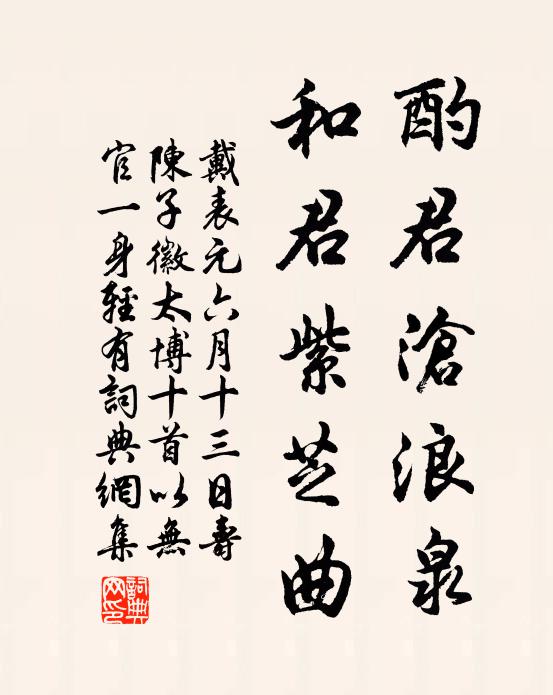 酌君滄浪泉
和君紫芝曲
戴表元六月十三日壽
陳子徽太博十首以無
官一身輕有詞典網集
詞典網印